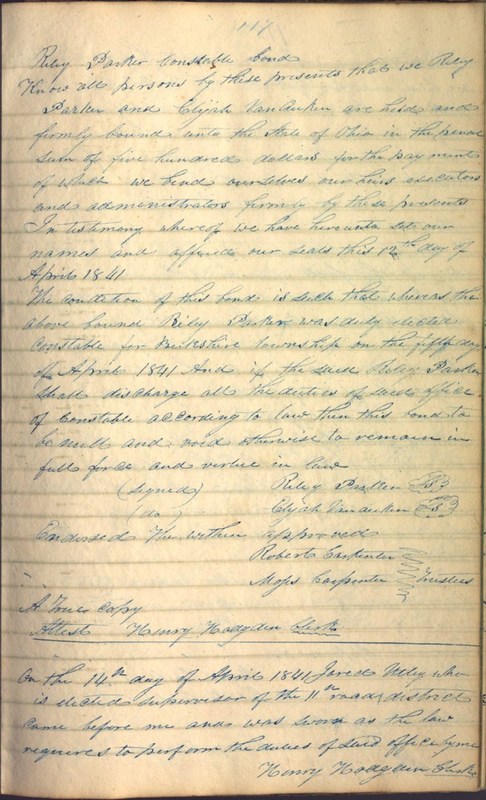 117
Riley Parker Constable bond
Know all persons by these presents that we Riley
Parker and Elijah VanAuken are held and
firmly bound unto the State of Ohio in the penal
sum of five hundred dollars for the payment
of which we bind ourselves our heirs executors
and administrators firmly by these presents
In testimony whereof we have hereunto set our
names and affixed our seals this 12th day of
April 1841
The condition of this bond is such that whereas the
above bound Riley Parker was duly elected
Constable for Berkshire township on the fifth day
of April 1841 And if the said Riley Parker
shall discharge all the duties of said office
of Constable according to law then this bond to
be null and void otherwise to remain in
full force and virtue in law
(signed) Riley Parker
(do) Elijah Vanauken
Endorsed The within approved
Robert Carpenter
Moses Carpenter Trustees
A True Copy
Attest Henry Hodgden Clerk
On the 14th day of April 1841 Jared who
is elected supervisor of the 11th road district
came before me and was sworn as the law
requires to perform the duties of said office by me
Henry Hodgden Clerk